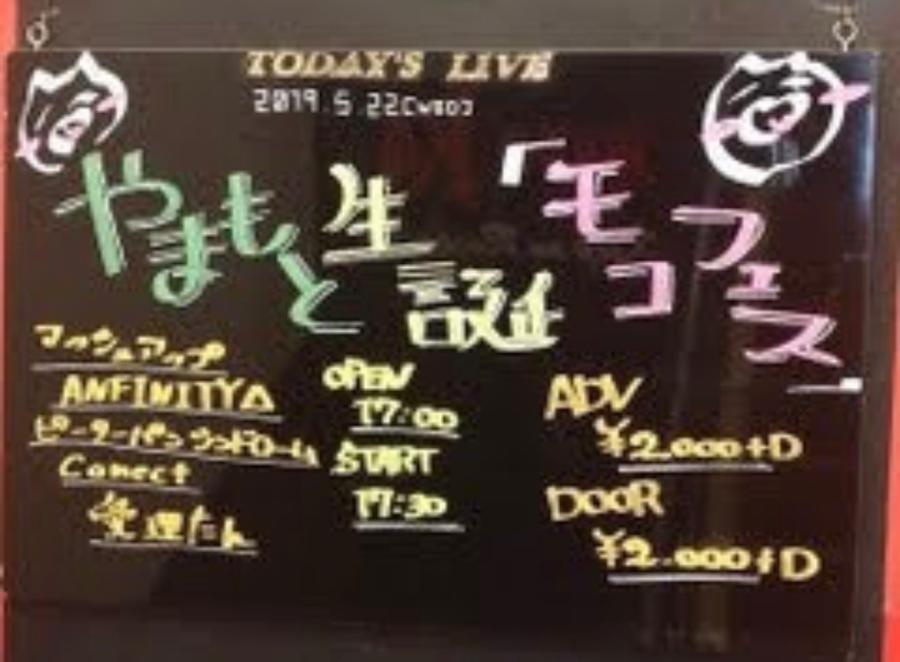 TODAY'S LIVE
2019.5.22[WED]
やまもと生誕
「モコフェス」
マッシュアップ
ANFINITY△
ピーターパンシンドローム
Conect
OPEN
17:00
START
17:30
ADV
¥2.000+D
DOOR
¥2.000+D